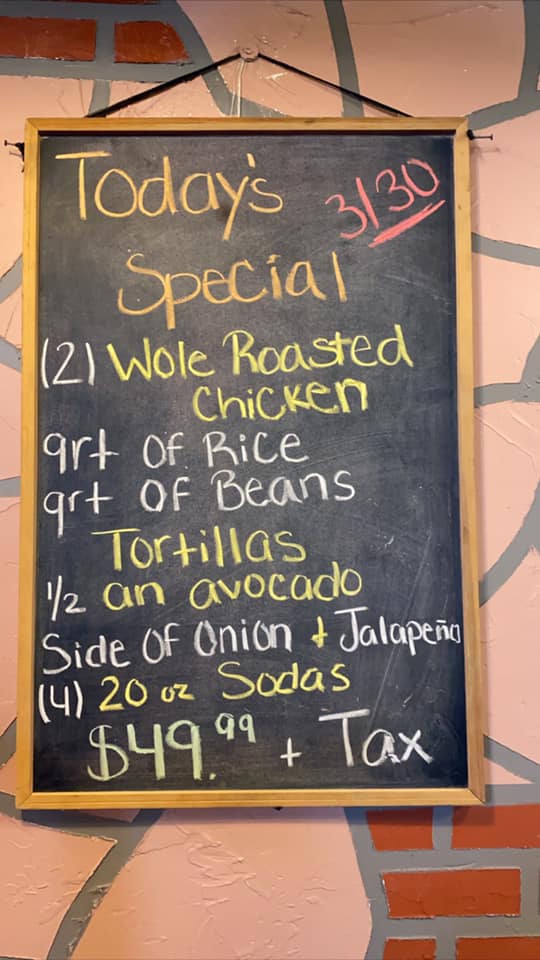 Today's 3/30
Special
(2) Wole Roasted
Chicken
qrt Of Rice
qrt OF Beans
Tortillas
1/2 an avocado
Side Of Onion + Jalapeño
(4) 20 oz Sodas
$49.99 + Tax